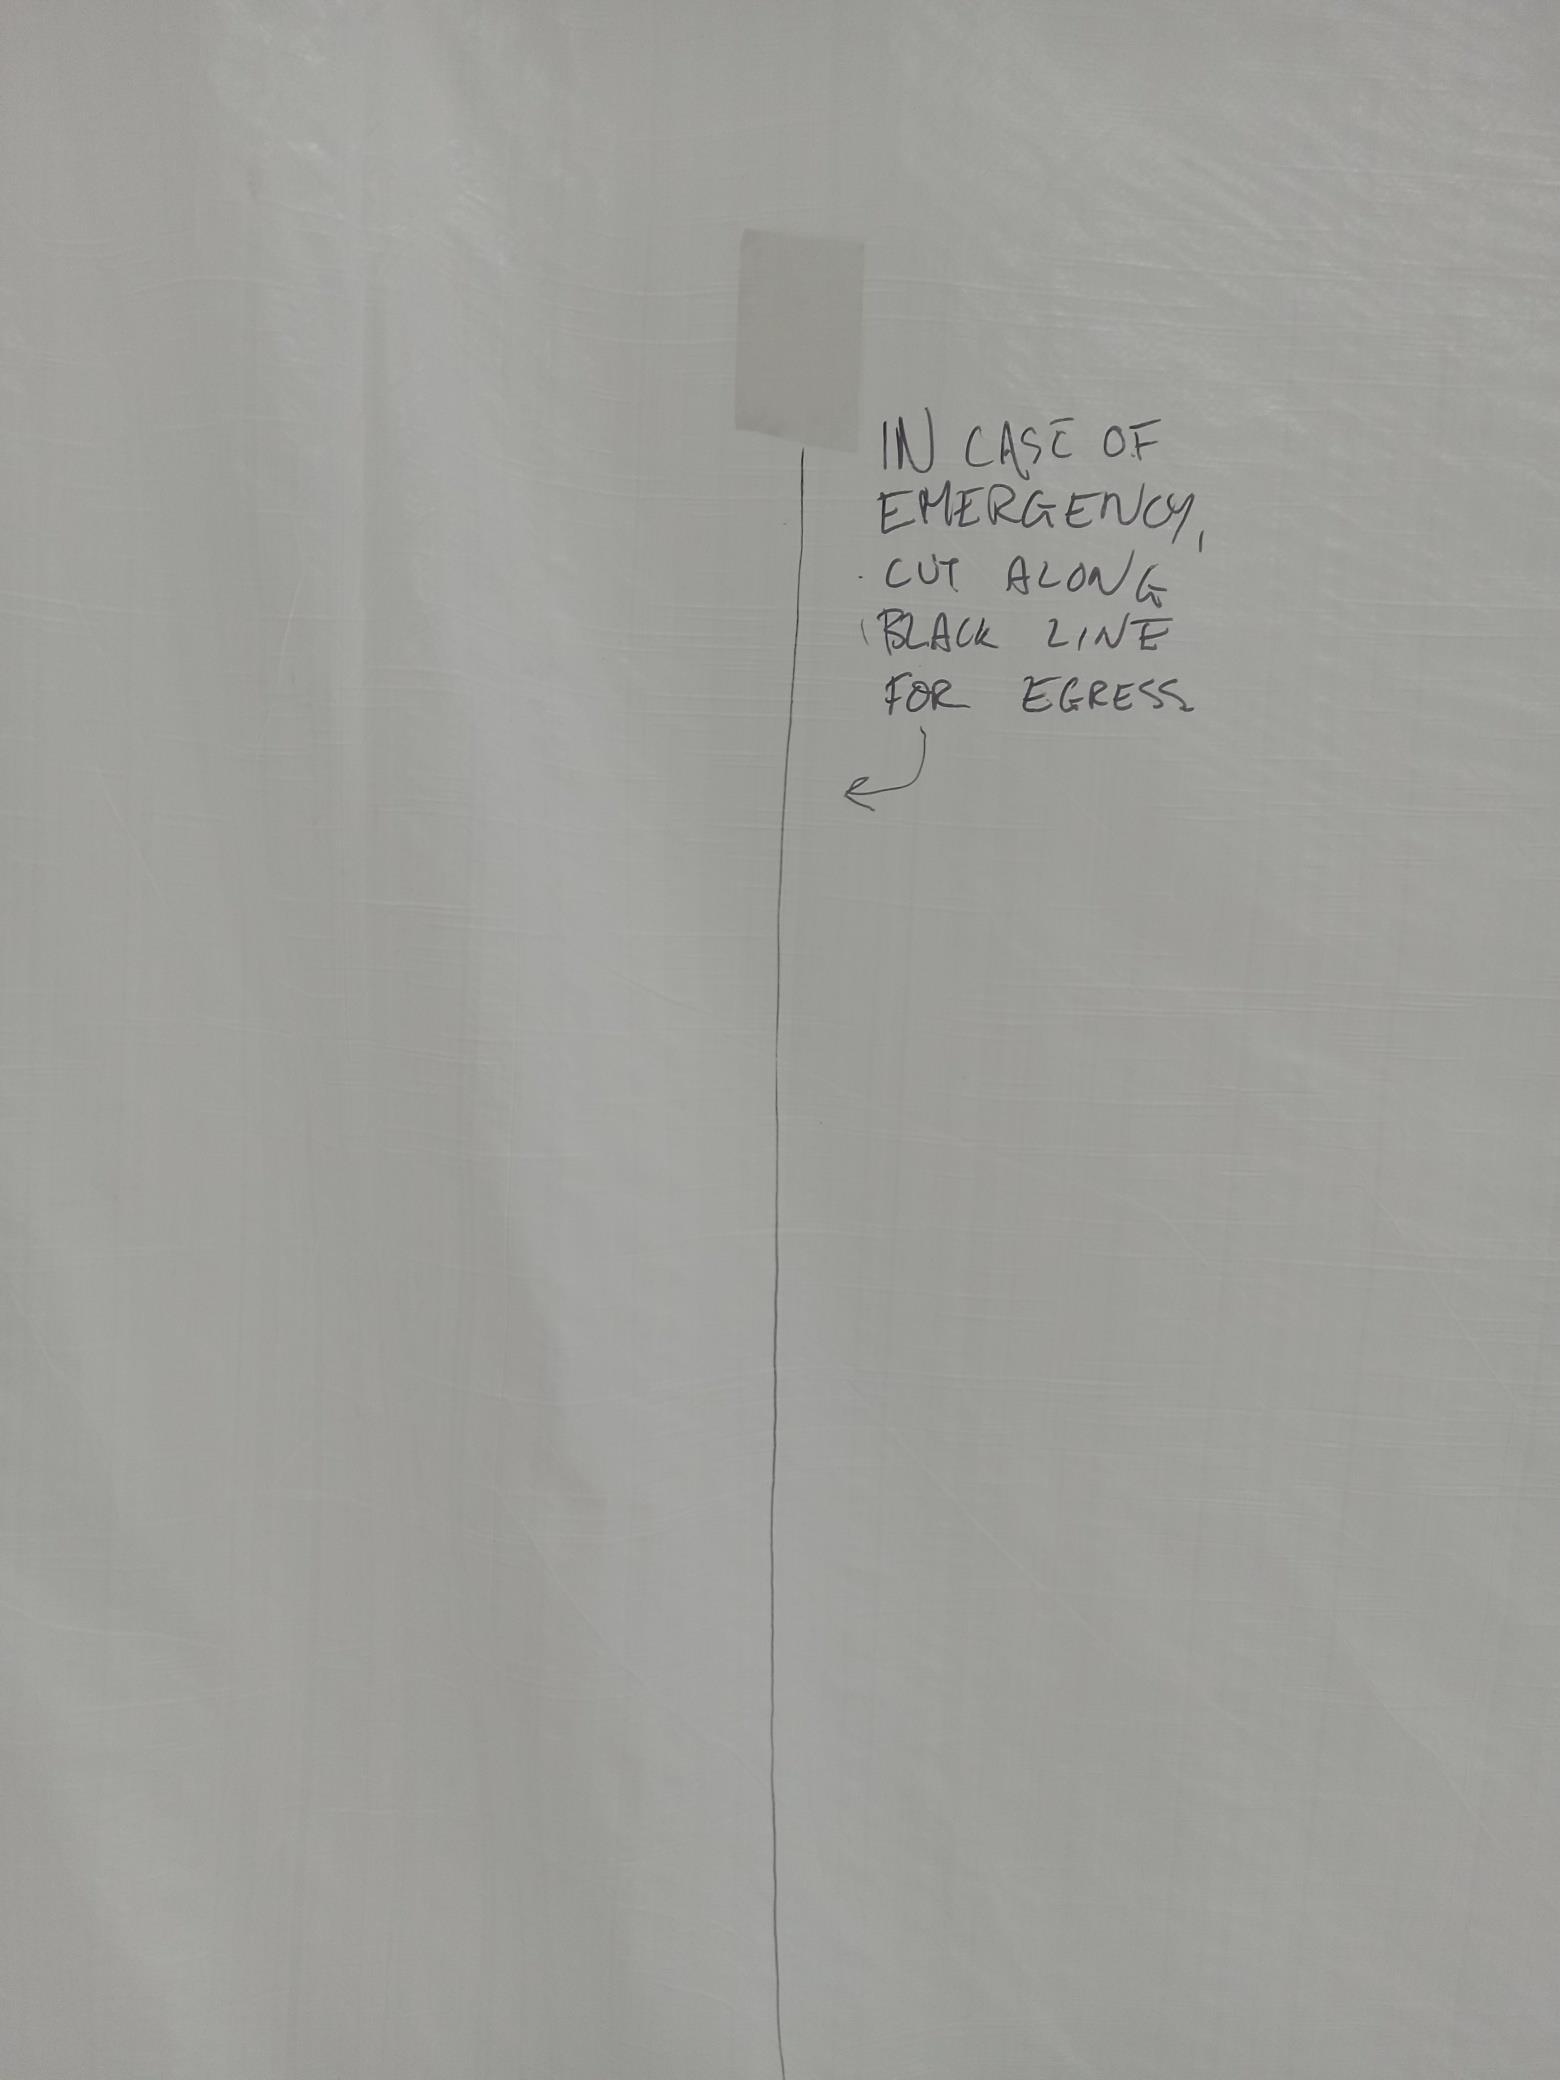 IN CASE OF
EMERGENCY,
CUT ALONG
BLACK LINE
FOR EGRESS